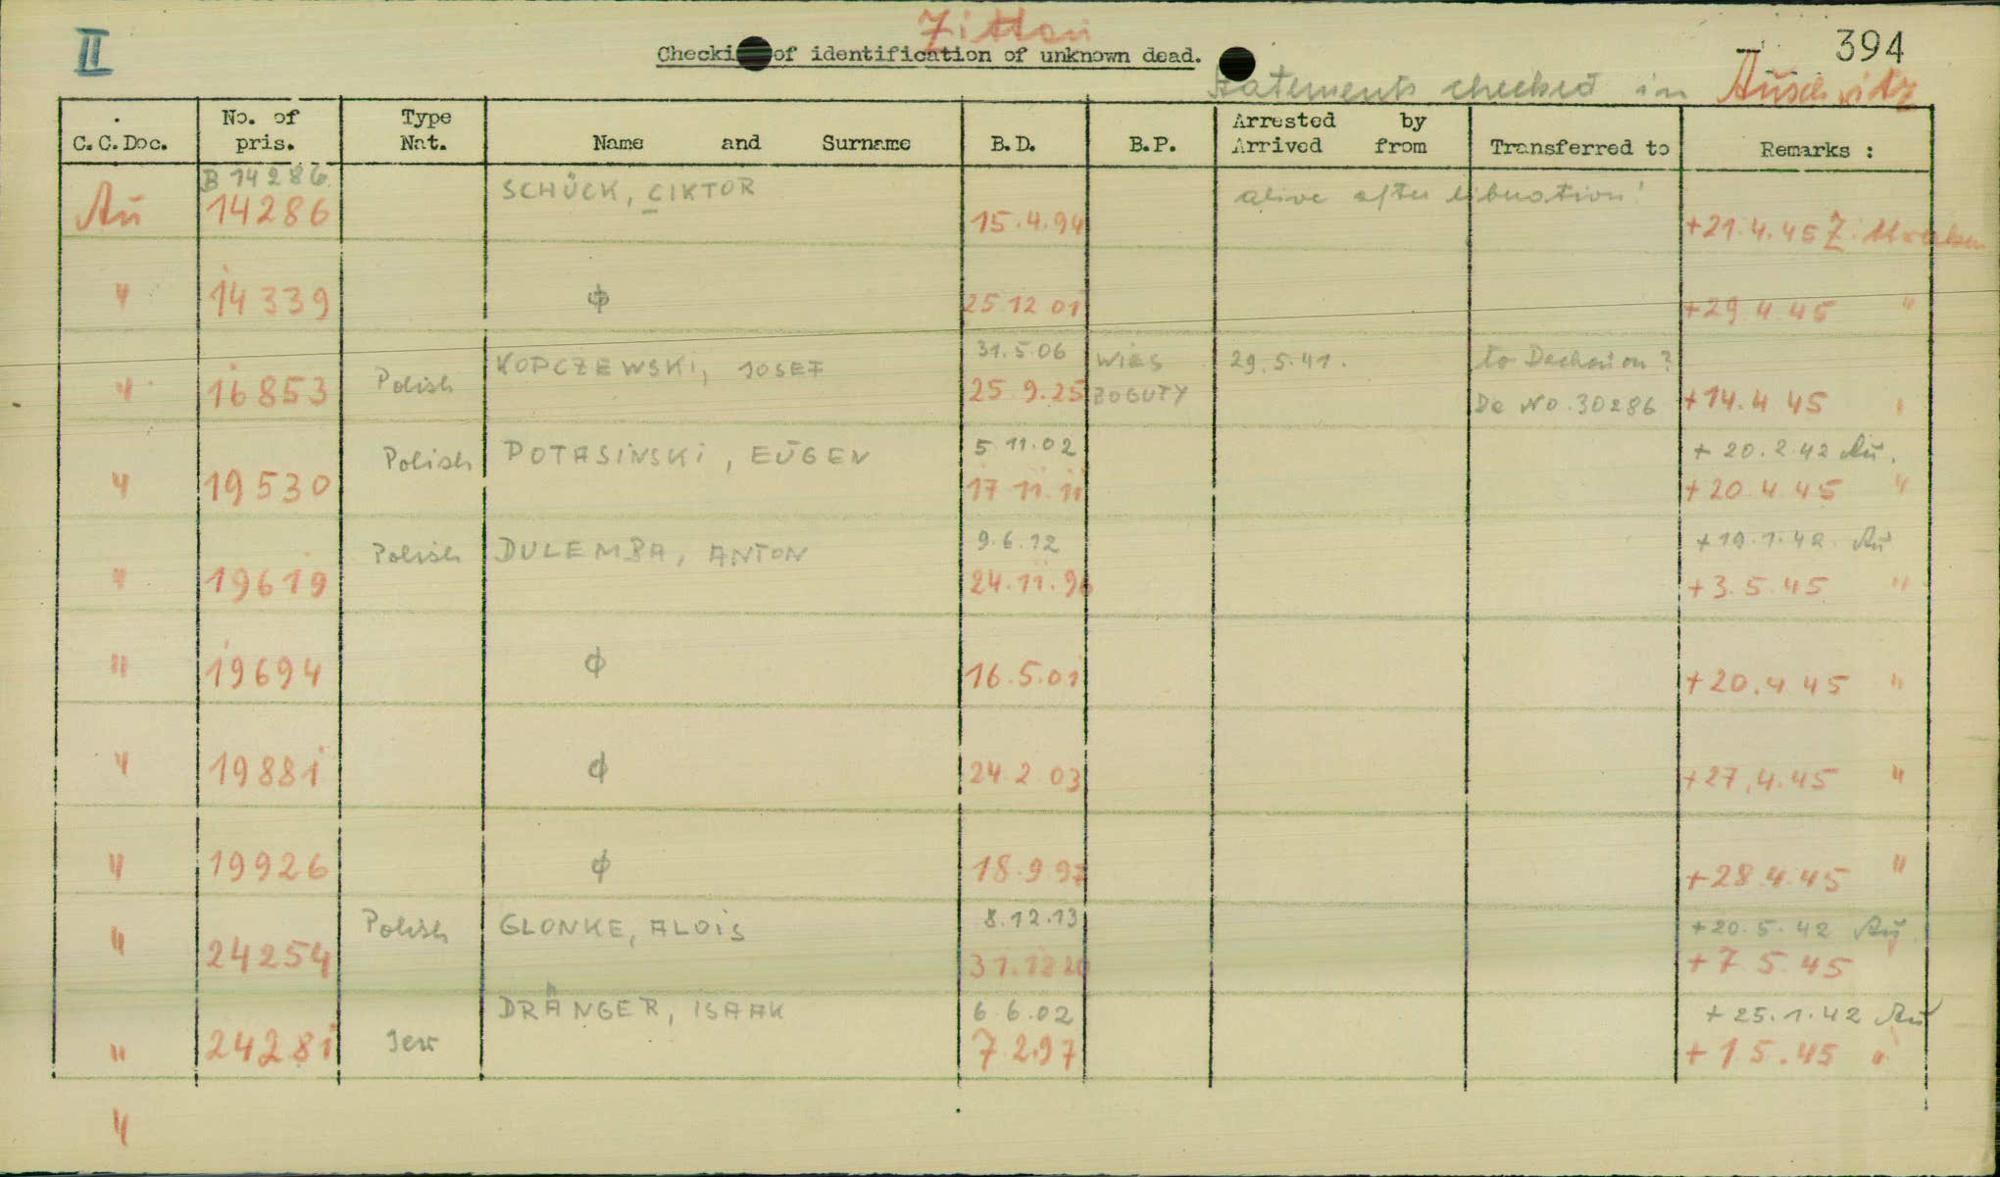 II
394
Checki of identification of unknown dead.
Statements checked in Auschwitz
C.C.Doc. No. of pris. Type Nat. Name and Surname B.D. B.P. Arrested by Arrived from Transferred to Remarks :
B 14286 SCHÜCK, CIKTOR alive after
Aŭ 14286 15.4.94 +21.4.45
" 14339 ϕ 25 12 01 +29 4 45 "
KOPCZEWSKI, JOSEF 31.5.06 WIES 29.5.41. to on ?
" 16853 Polish 25 9.25 BOGUTY Da No.30286 +14.4 45
Polish POTASINSKI, EŬGEN 5 11.02 + 20.2.42 Aŭ.
" 19530 17 11.11 +20 4 45 "
Polish DULEMBA, ANTON 9.6.12 +19.1.42 Aŭ
" 19619 24.11.96 +3.5.45 "
" 19694 ϕ 16.5.01 +20.4 45 "
" 19881 ϕ 24 2 03 +27.4.45 "
" 19926 ϕ 18.9 97 +28 4.45 "
Polish GLONKE, ALOIS 8.12.13 +20.5.42 Aŭ
" 24254 +7 5.45
DRÄNGER, ISAAK 6 6.02 + 25.1.42 Aŭ
" 24281 Jew 7 2.97 + 1 5.45 "
"